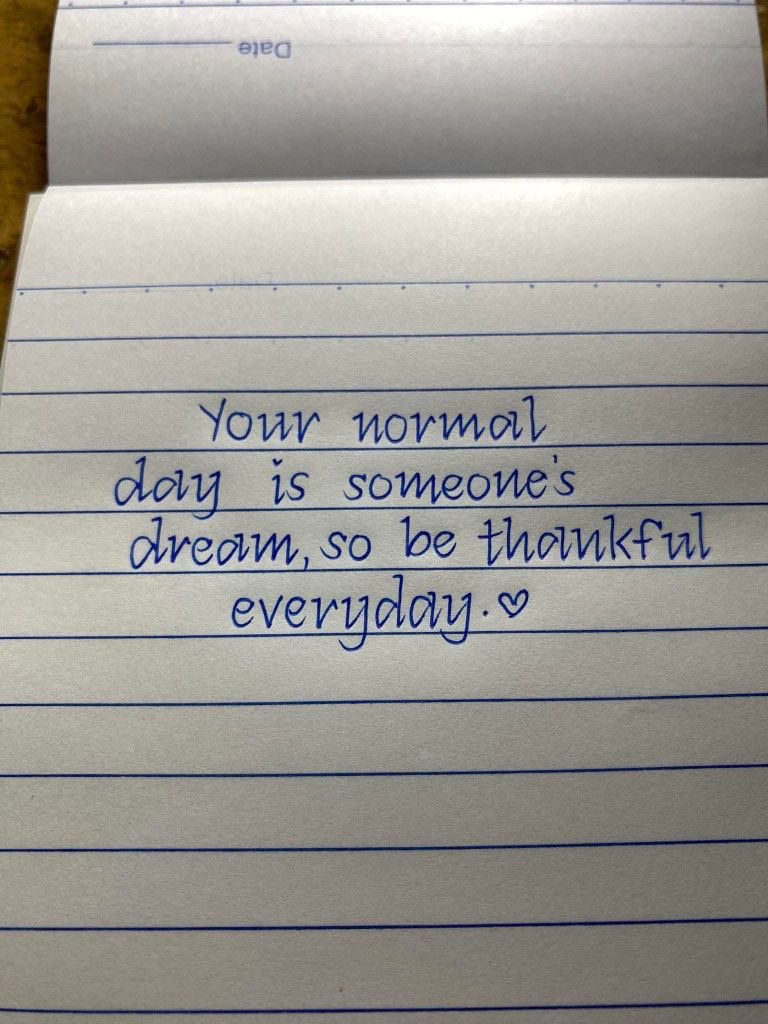 Date
Your normal
day is someone's
dream, so be thankful
everyday. ♡